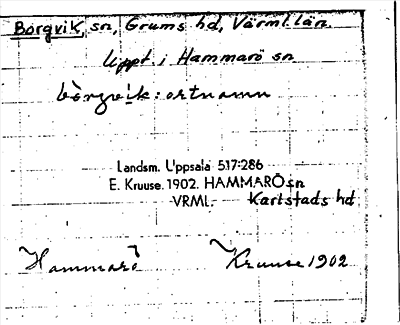 Borgvik, sn, Grums hd, Värml. län.
Uppt. i Hammarö sn
bòrgvi̲k : ortnamn
Landsm. Uppsala 517:286
E. Kruuse. 1902. HAMMARÖ sn
VRML. Karlstads hd
Hammarö Kruuse 1902